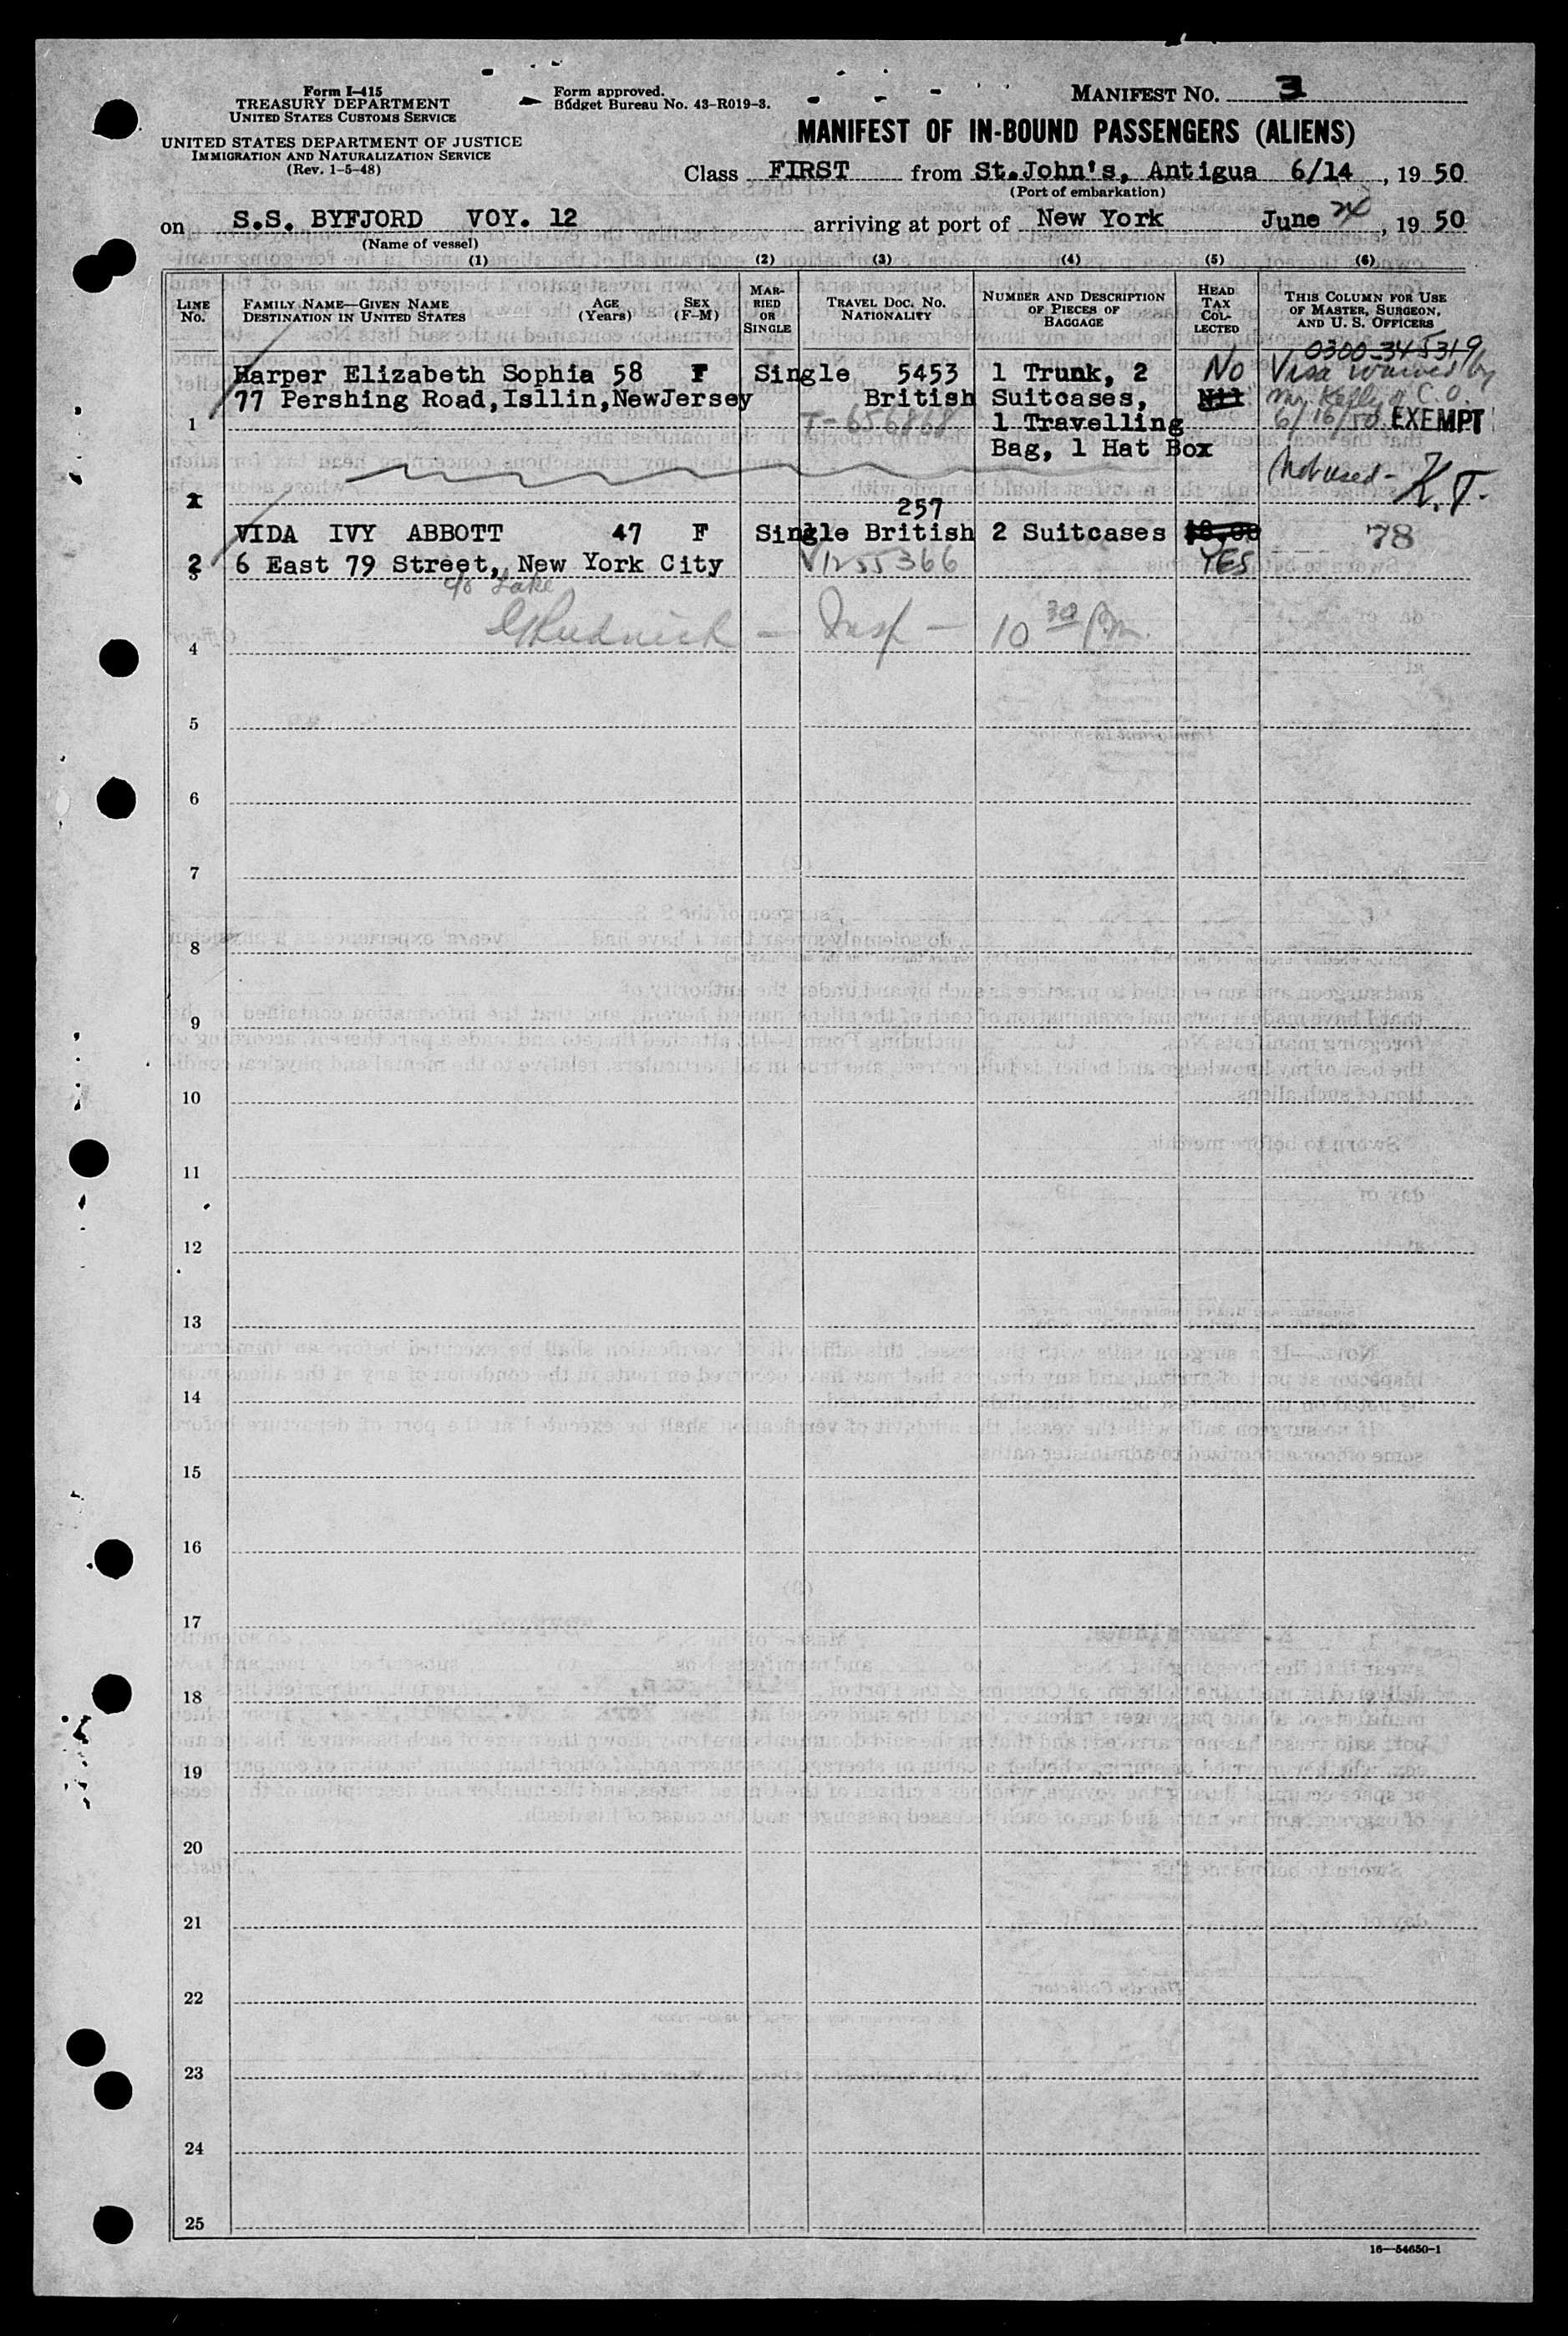 Form I-415
TREASURY DEPARTMENT
UNITED STATES CUSTOMS SERVICE
UNITED STATES DEPARTMENT OF JUSTICE
IMMIGRATION AND NATURALIZATION SERVICE
(Rev. 1-5-48)
Form approved.
Budget Bureau No. 43-R019-3.
MANIFEST NO. 3
MANIFEST OF IN-BOUND PASSENGERS (ALIENS)
Class FIRST from St.John's, Antigua 6/14, 19 50
(Port of embarkation)
on S.S. BYFJORD VOY. 12 arriving at port of New York June 20, 19 50
(Name of vessel)
(1) (2) (3) (4) (5) (6)
LINE NO.
FAMILY NAME—GIVEN NAME
DESTINATION IN UNITED STATES
AGE (Years)
SEX (F-M)
MARRIED OR SINGLE
TRAVEL DOC. NO.
NATIONALITY
NUMBER AND DESCRIPTION OF PIECES OF BAGGAGE
HEAD TAX COLLECTED
THIS COLUMN FOR USE OF MASTER, SURGEON, AND U. S. OFFICERS
0300-345319
Harper Elizabeth Sophia 58 F Single 5453 1 Trunk, 2 No Visa waived by
77 Pershing Road,Isllin,NewJersey British Suitcases, Nil Mr. Kelly of C.O.
1 T-656868 1 Travelling 6/16/50 EXEMPT
Bag, 1 Hat Box
Not used - K.T.
257
VIDA IVY ABBOTT 47 F Single British 2 Suitcases $8.00 78
2 6 East 79 Street, New York City V1255366 YES
c/o Lake
GRudnick — Insp — 10 30 Pm.
4
5
6
7
8
9
10
11
12
13
14
15
16
17
18
19
20
21
22
23
24
25
16—54650-1